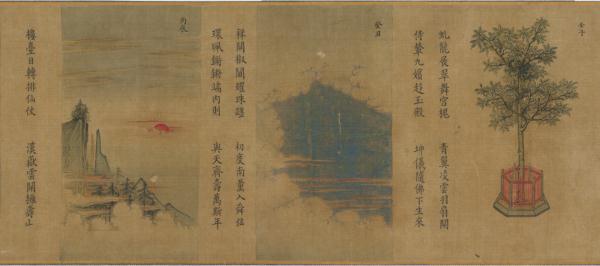 壬子
虬龍展翠舞宮槐 青翼凌雲羽扇開
倩輦九嬪趨玉殿 坤儀隨佛下生來
癸丑
祥開椒閣耀珠躔 初度南薰入舜絃
環珮鏘鏘端內則 與天齊壽萬斯年
丙辰
樓臺日轉排仙仗 漢嶽雲開擁壽山